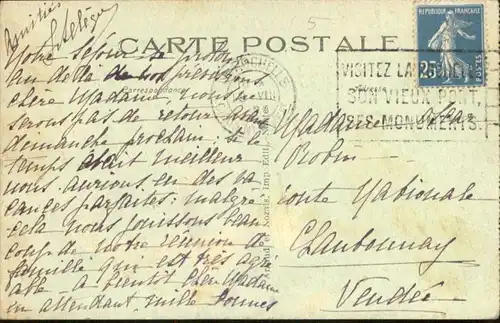 Amitiés
CARTE POSTALE
Correspondance
Notre séjour se prolonge
au delà de nos prévisions
chère Madame, nous ne
serons pas de retour
dimanche prochain. Si le
temps était meilleur
nous aurions eu des va
cances parfaites: malgré
cela nous jouissons beau
coup de notre réunion de
famille qui est très agré
able. A bientôt chère Madame
en attendant mille bonnes
REPUBLIQUE FRANÇAISE
25
POSTES
VISITEZ LA ROCHELLE
SON VIEUX PORT,
SES MONUMENTS.
Madame
Robin
route Nationale
Chantonnay
Vendée